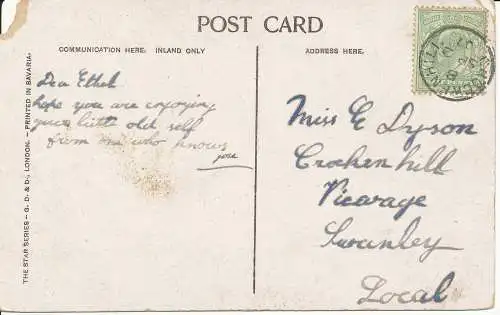 POST CARD
COMMUNICATION HERE: INLAND ONLY
ADDRESS HERE.
Dear Ethel
hope you are enjoying
your little old self
from one who knows
you
Miss E Dyson
Crockenhill
Vicarage
Swanley
Local
THE STAR SERIES – G. D. & D., LONDON. – PRINTED IN BAVARIA.
CROCKENHILL